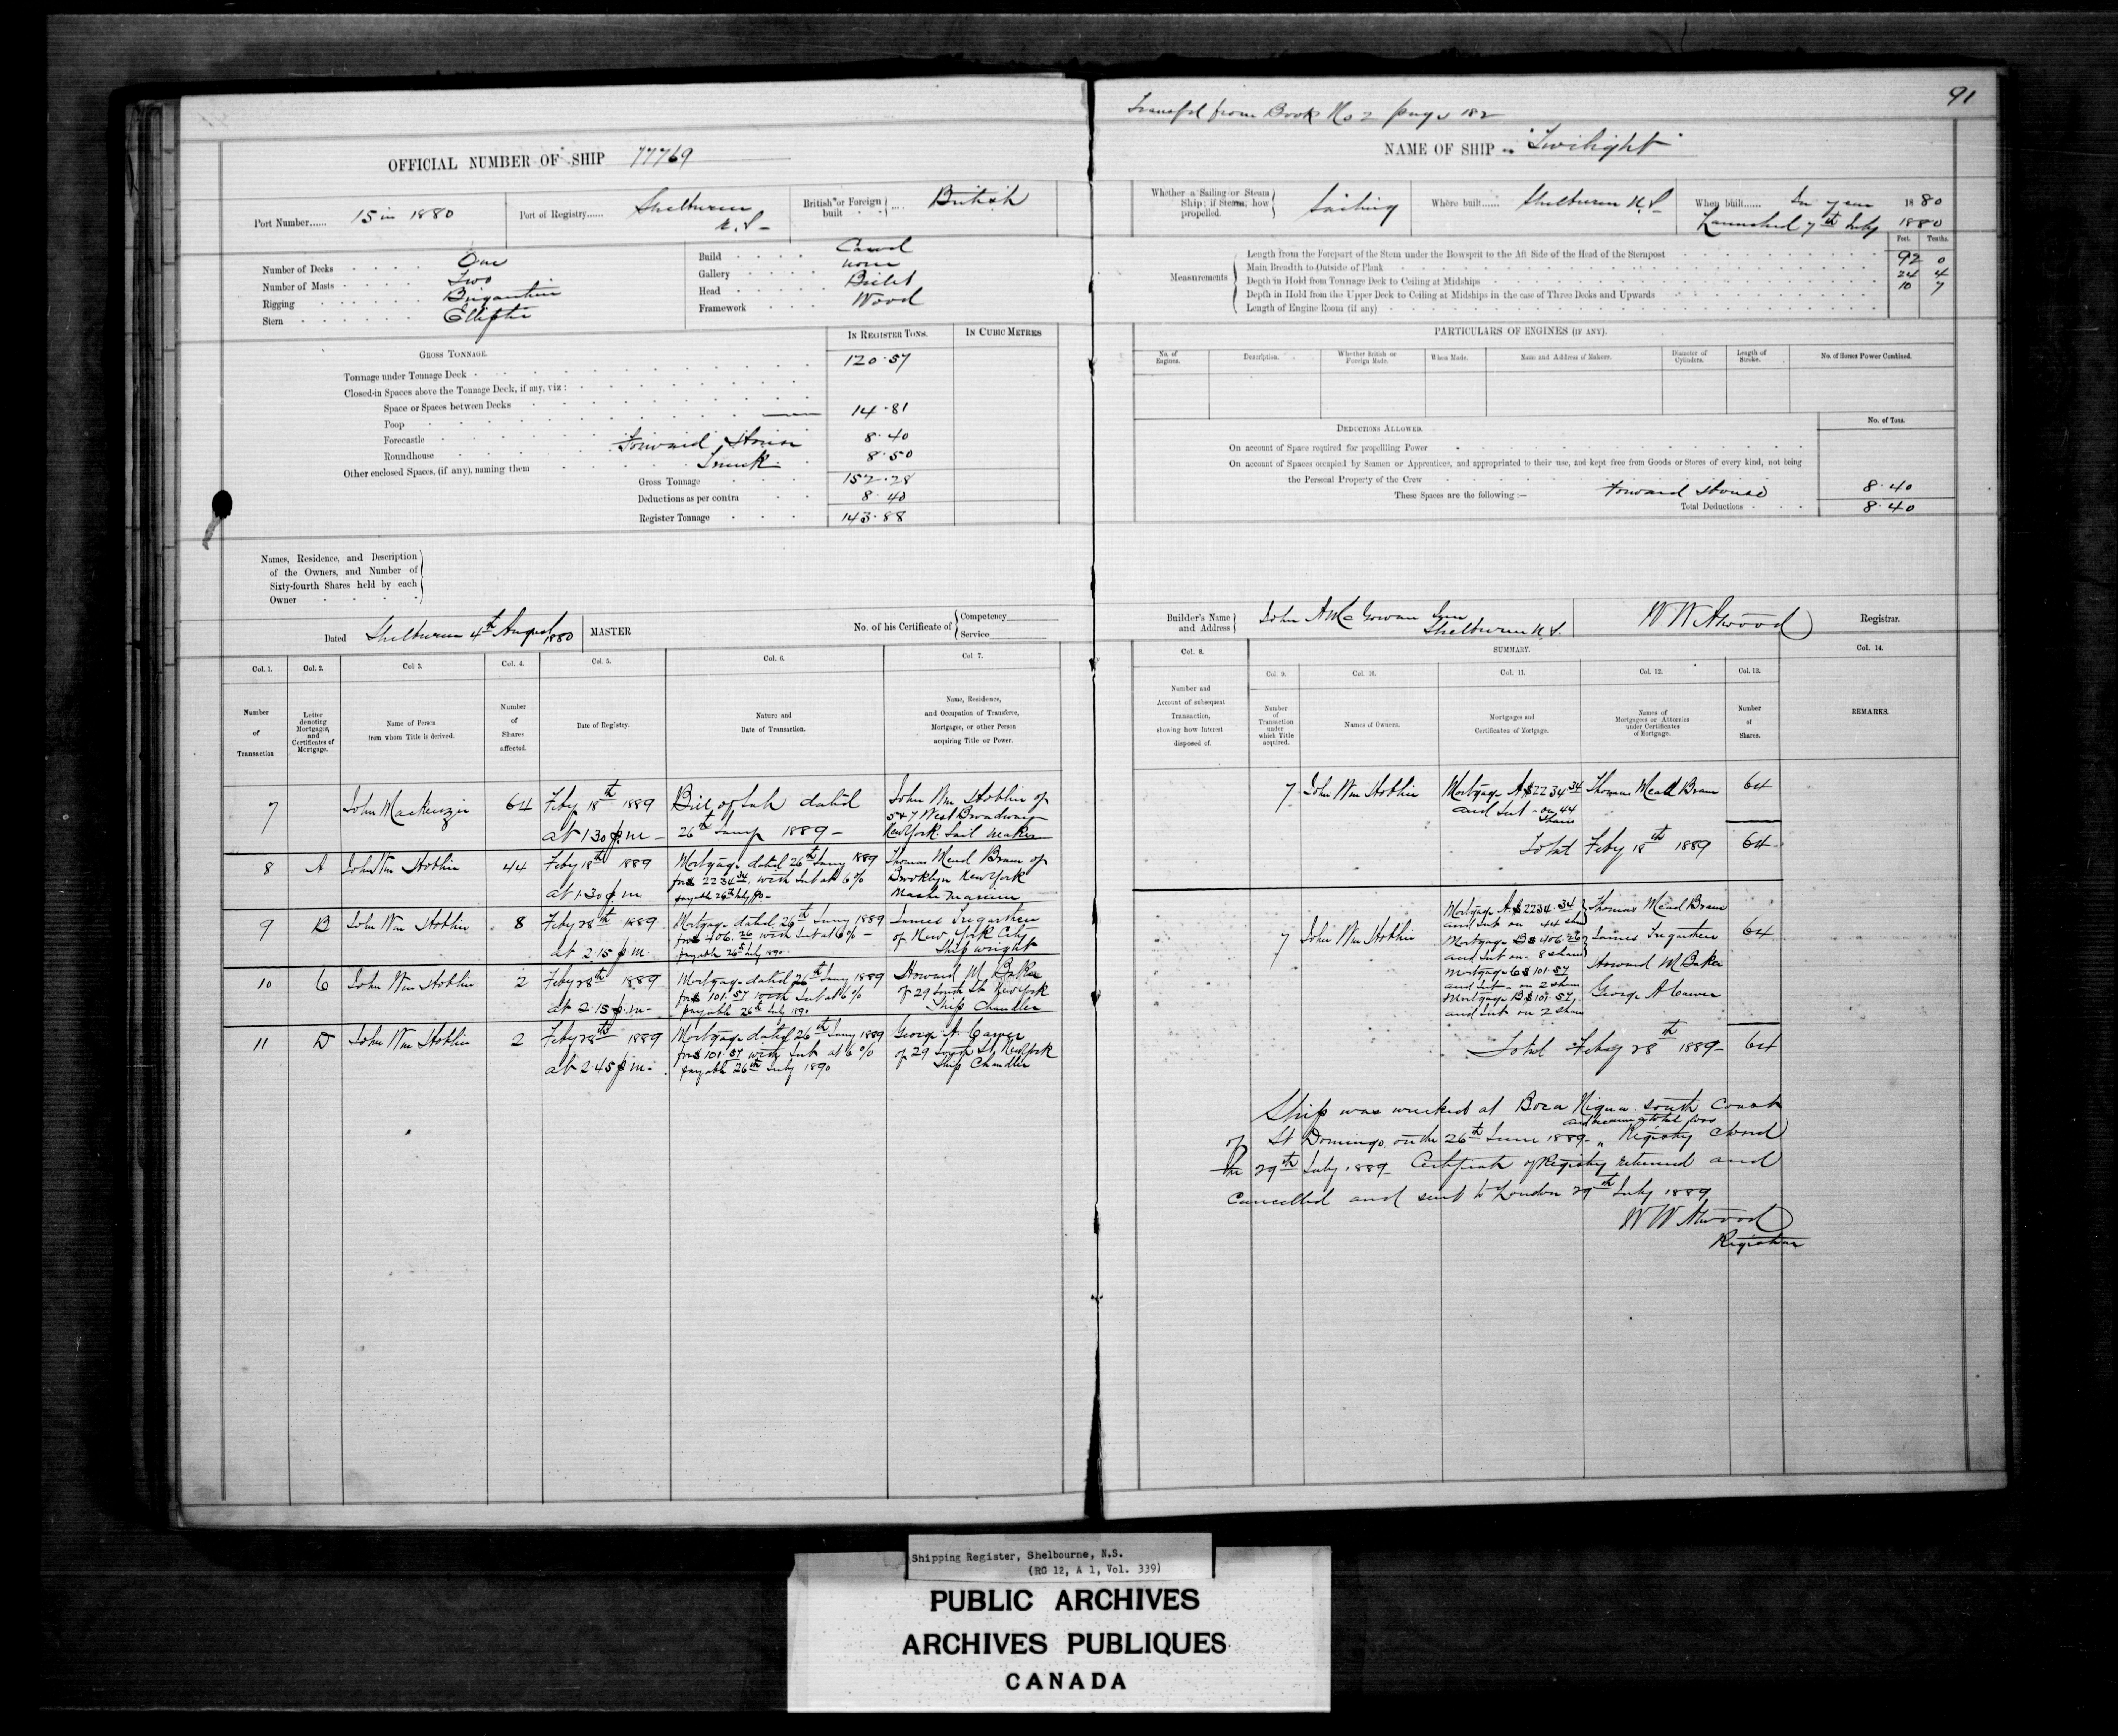 91
Transfd from Book No 2 page 182
OFFICIAL NUMBER OF SHIP 77769
NAME OF SHIP "Twilight"
Port Number...... 15 in 1880
Port of Registry...... Shelburne N.S.
British or Foreign built .... British
Whether a Sailing or Steam Ship; if Steam, how propelled. Sailing
Where built...... Shelburne N.S.
When built...... In year 1880
Launched 7th July 1880
Number of Decks One
Number of Masts Two
Rigging Brigantine
Stern Elliptic
Build Carvel
Gallery none
Head Billet
Framework Wood
Measurements
Feet. Tenths.
Length from the Forepart of the Stem under the Bowsprit to the Aft Side of the Head of the Sternpost 92 0
Main Breadth to Outside of Plank 24 4
Depth in Hold from Tonnage Deck to Ceiling at Midships 10 7
Depth in Hold from the Upper Deck to Ceiling at Midships in the case of Three Decks and Upwards
Length of Engine Room (if any)
GROSS TONNAGE.
IN REGISTER TONS.
IN CUBIC METRES
Tonnage under Tonnage Deck 120.57
Closed-in Spaces above the Tonnage Deck, if any, viz:
Space or Spaces between Decks
Poop 14.81
Forecastle
Roundhouse Forward House 8.40
Other enclosed Spaces, (if any), naming them Trunk 8.50
Gross Tonnage 152.28
Deductions as per contra 8.40
Register Tonnage 143.88
PARTICULARS OF ENGINES (IF ANY).
No. of Engines.
Description.
Whether British or Foreign Made.
When Made.
Name and Address of Makers.
Diameter of Cylinders.
Length of Stroke.
No. of Horses Power Combined.
DEDUCTIONS ALLOWED.
No. of Tons.
On account of Space required for propelling Power
On account of Spaces occupied by Seamen or Apprentices, and appropriated to their use, and kept free from Goods or Stores of every kind, not being
the Personal Property of the Crew
These Spaces are the following:— Forward House 8.40
Total Deductions 8.40
Names, Residence, and Description
of the Owners, and Number of
Sixty-fourth Shares held by each
Owner
Dated Shelburne 4th August 1880
MASTER
No. of his Certificate of
Competency
Service
Builder's Name and Address
John A McGowan
Shelburne N.S.
W W Atwood Registrar.
Col. 1.
Number of Transaction
Col. 2.
Letter denoting Mortgages, and Certificates of Mortgage.
Col 3.
Name of Person from whom Title is derived.
Col. 4.
Number of Shares affected.
Col. 5.
Date of Registry.
Col. 6.
Nature and Date of Transaction.
Col 7.
Name, Residence, and Occupation of Transferee, Mortgagee, or other Person acquiring Title or Power.
Col. 8.
Number and Account of subsequent Transaction, showing how Interest disposed of.
SUMMARY.
Col. 9.
Number of Transaction under which Title acquired.
Col. 10.
Names of Owners.
Col. 11.
Mortgages and Certificates of Mortgage.
Col. 12.
Names of Mortgagees or Attornies under Certificates of Mortgage.
Col. 13.
Number of Shares.
Col. 14.
REMARKS.
7 John Mackenzie 64 Feby 18th 1889
at 1.30 p.m
Bill of Sale dated
26th Jany 1889
John Wm Hoblin of
547 West Broadway
New York Sail maker
8 A John Wm Hoblin 44 Feby 18th 1889
at 1.30 p.m
Mortgage dated 26th Jany 1889
for $2234.34 with Int at 6%
payable 26th July 90
Thomas Mead Bram of
Brooklyn New York
Master Mariner
9 B John Wm Hoblin 8 Feby 28th 1889
at 2.15 p.m.
Mortgage dated 26th Jany 1889
for $406.26 with Int at 6%
payable 26th July 1890
James Tregarthen
of New York City
Ship wright
10 C John Wm Hoblin 2 Feby 28th 1889
at 2.15 p.m
Mortgage dated 26th Jany 1889
for $101.57 with Int at 6%
payable 26th July 1890
Howard M. Baker
of 29 South St New York
Ship Chandler
11 D John Wm Hoblin 2 Feby 28th 1889
at 2.45 p.m.
Mortgage dated 26th Jany 1889
for $101.57 with Int at 6%
payable 26th July 1890
George A.
of 29 South St, New York
Ship Chandler
7 John Wm Hoblin
Mortgage A $2234.34
and Int on 44
Shares
Thomas Mead Bram 64
Total Feby 18th 1889 64
7 John Wm Hoblin
Mortgage A $2234.34
and Int on 44 sha
Mortgage B $406.26
and Int on 8 shares
Mortgage C $101.57
and Int on 2 shares
Mortgage D $101.57
and Int on 2 shares
Thomas Mead Bram
James Tregarthen
Howard M Baker
George A
64
Total Feby 28th 1889 64
Ship was wrecked at Boca Nigua south Coast
of St Domingo on the 26th June 1889 and became a total loss Registry closed
the 29th July 1889 Certificate of Registry returned and
Cancelled and sent to London 29th July 1889
W W Atwood
Registrar
Shipping Register, Shelbourne, N.S.
(RG 12, A 1, Vol. 339)
PUBLIC ARCHIVES
ARCHIVES PUBLIQUES
CANADA